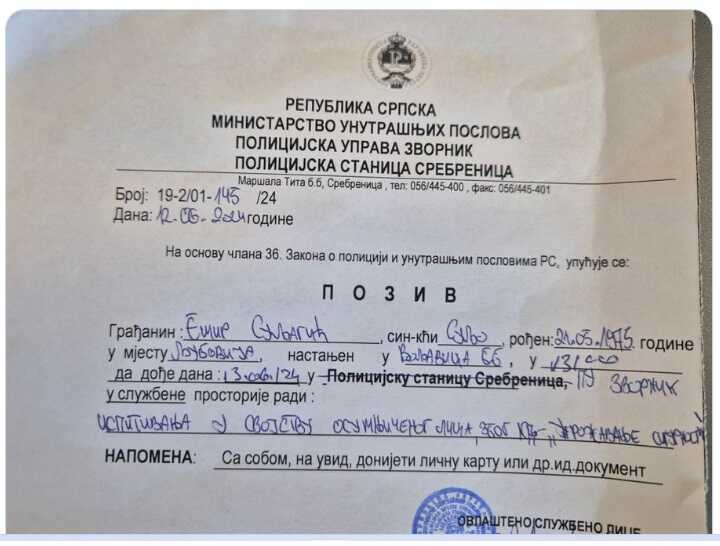 РЕПУБЛИКА СРПСКА
МИНИСТАРСТВО УНУТРАШЊИХ ПОСЛОВА
ПОЛИЦИЈСКА УПРАВА ЗВОРНИК
ПОЛИЦИЈСКА СТАНИЦА СРЕБРЕНИЦА
Маршала Тита б.б, Сребреница , тел: 056/445-400 , факс: 056/445-401
Број: 19-2/01-145 /24
Дана: 12.06.2024 године
На основу члана 36. Закона о полицији и унутрашњим пословима РС, упућује се:
П О З И В
Грађанин : Емир Суљагић , син-кћи Суљо , рођен: 21.05.1975. године
у мјесту Љубовија, настањен у Вољавица ББ, у 13,00
да дође дана : 13.06.24 у Полицијску станицу Сребреница, ПУ Зворник
у службене просторије ради :
испитивања у својству осумњиченог лица, због КД-
НАПОМЕНА: Са собом, на увид, донијети личну карту или др.ид.документ
ОВЛАШТЕНО СЛУЖБЕНО ЛИЦЕ